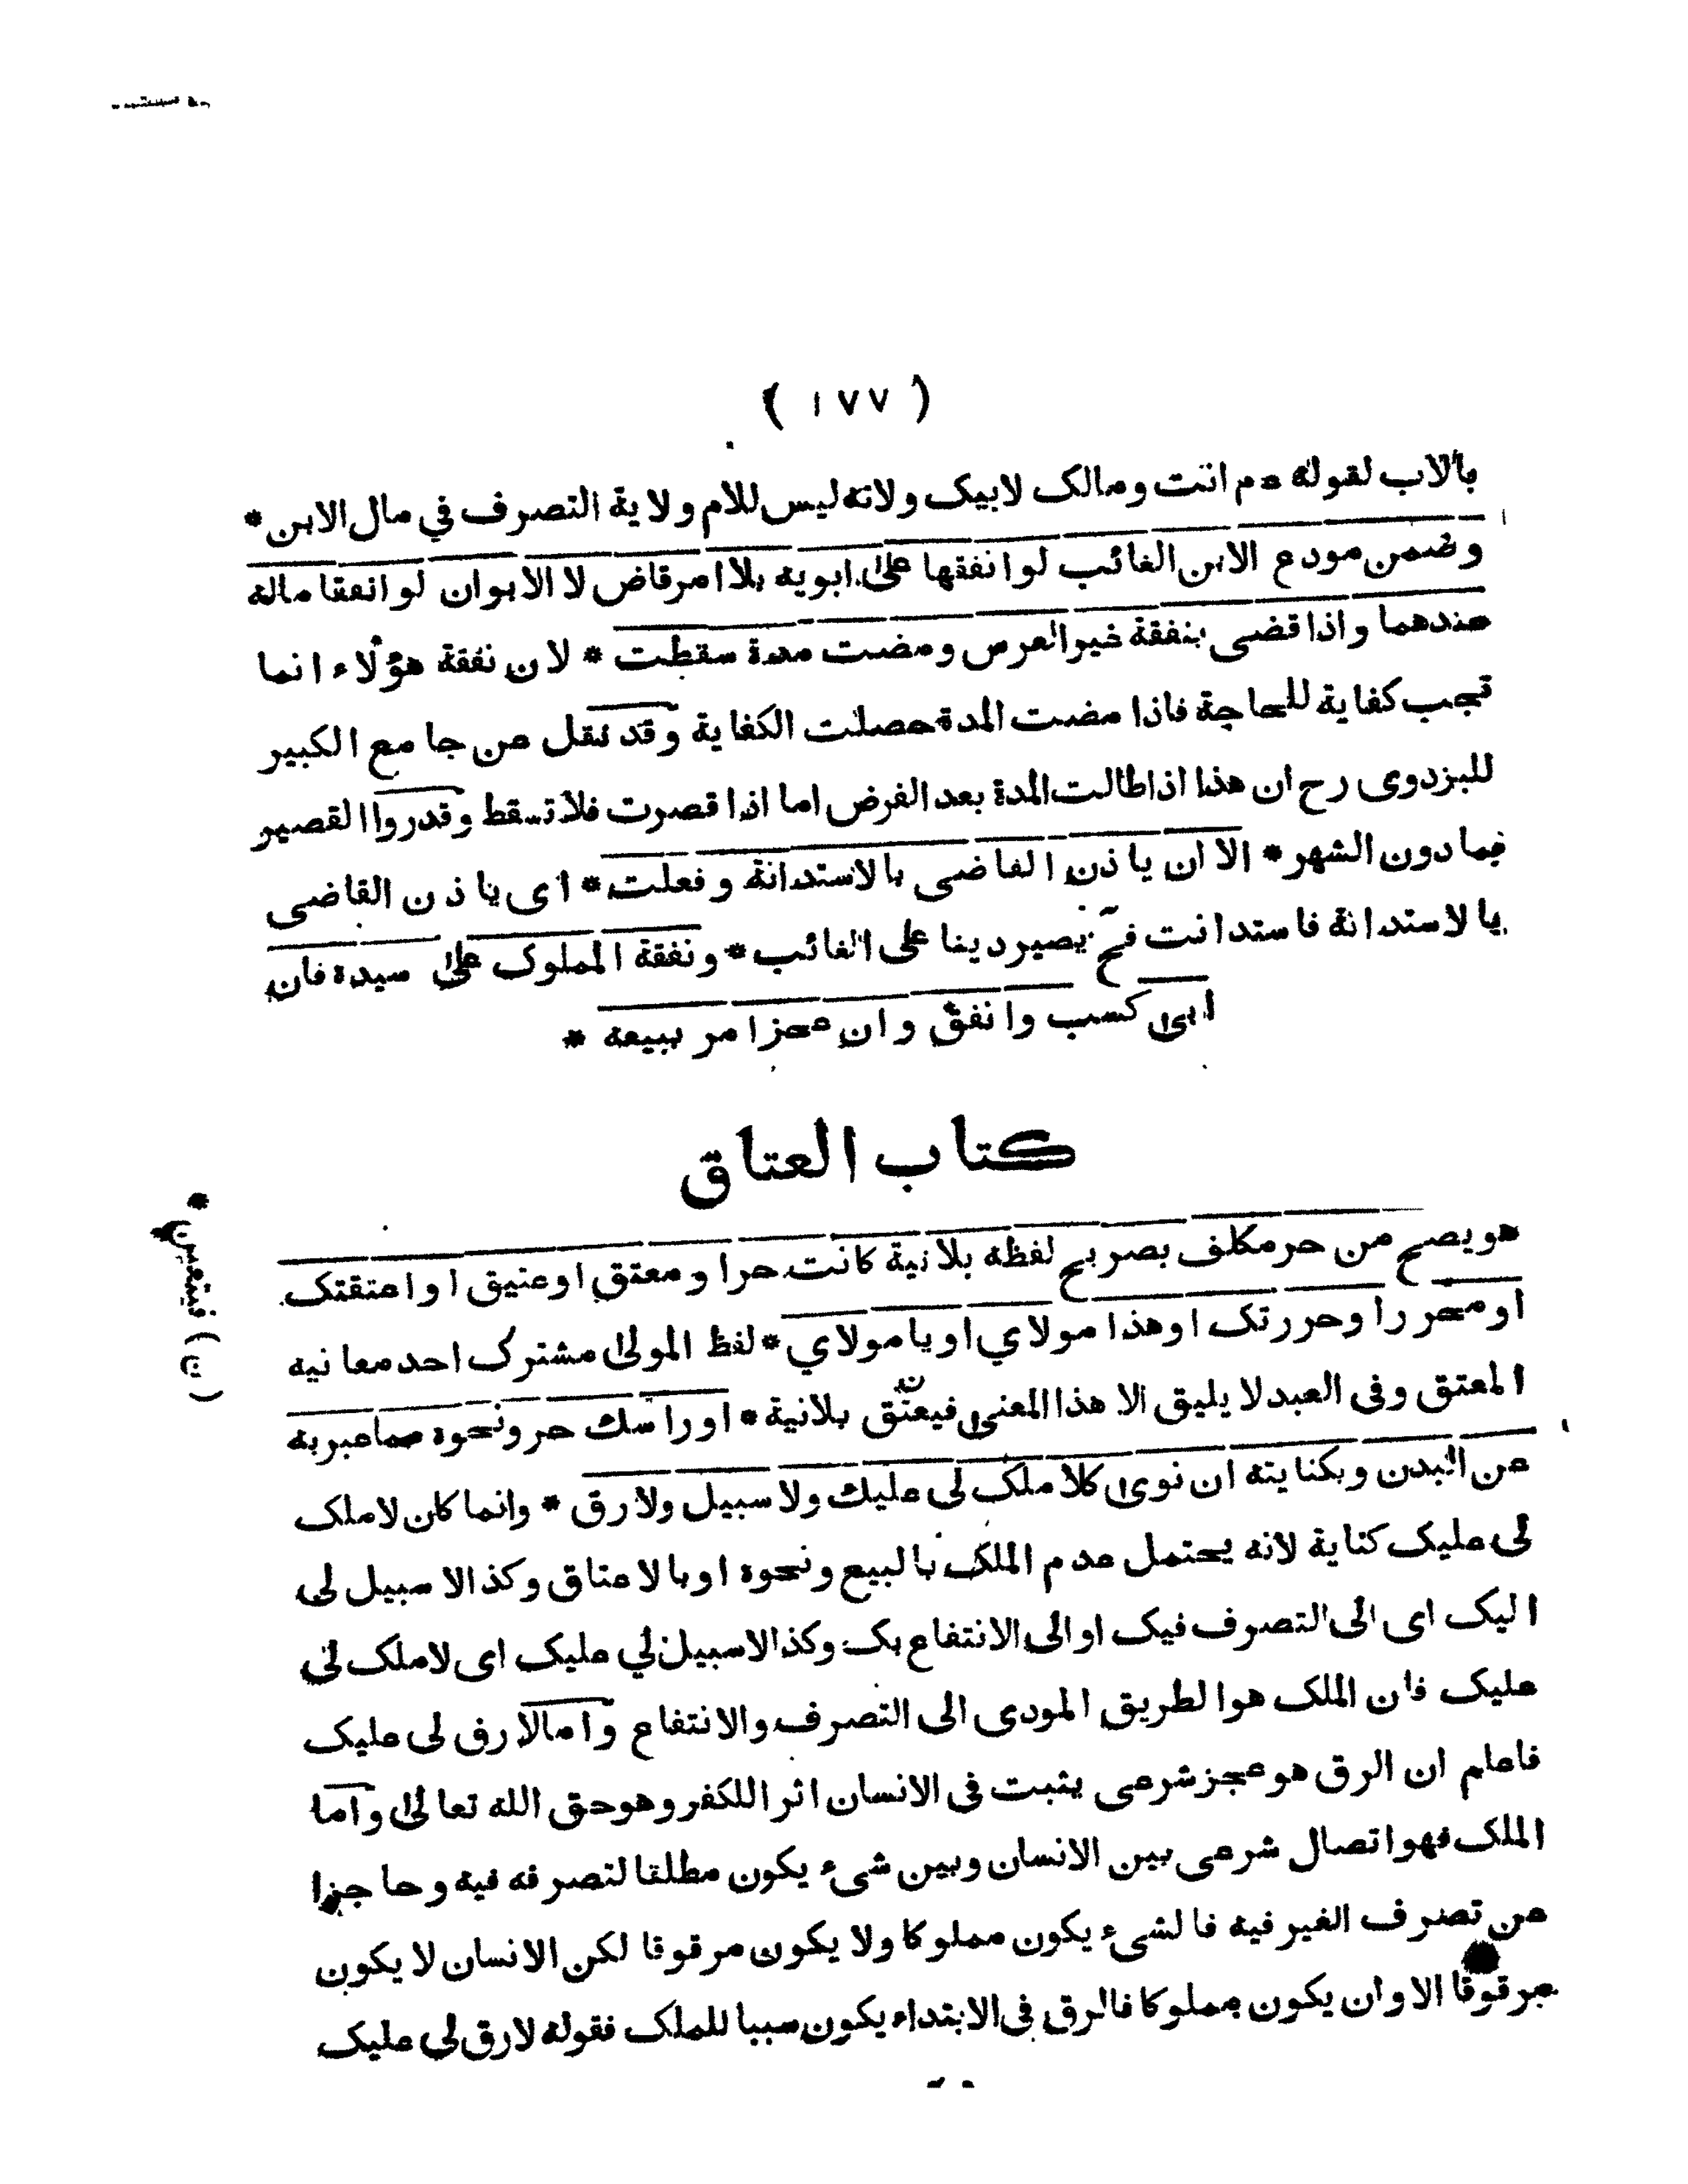 ( ١٧٧ )
بالاب لقوله عم انت ومالك لابيك ولانه ليس للام ولاية التصرف في مال الابن *
وضمن مودع الابن الغائب لو انفقها على ابويه بلا امر قاض لا الابوان لو انفقا ماله
عندهما واذا قضى بنفقة غير العرس ومضت مدة سقطت * لان نفقة هؤلاء انما
تجب كفاية للحاجة فاذا مضت المدة حصلت الكفاية وقد نقل عن جامع الكبير
للبزدوى رح ان هذا اذا طالت المدة بعد الفرض اما اذا قصرت فلا تسقط وقدروا القصير
فيما دون الشهر * الا ان ياذن القاضى بالاستدانة وفعلت * اى ياذن القاضى
بالاستدانة فاستدانت فح يصير دينا على الغائب * ونفقة المملوك على سيده فان
ابى كسب وانفق وان عجز امر ببيعه *
كتاب العتاق
هو يصح من حر مكلف بصريح لفظه بلا نية كانت حر او معتق او عتيق او اعتقتك
او محرر او حررتك او هذا مولاي او يا مولاي * لفظ المولى مشترك احد معانيه
المعتق وفى العبد لا يليق الا هذا المعنى فيعتق بلانية * او راسك حر ونحوه مما عبر به
عن البدن وبكنايته ان نوى كلا ملك لى عليك ولا سبيل ولا رق * وانما كان لا ملك
لى عليك كناية لانه يحتمل عدم الملك بالبيع ونحوه او بالاعتاق وكذا لا سبيل لى
اليك اى الى التصرف فيك او الى الانتفاع بك وكذا لا سبيل لي عليك اى لا ملك لى
عليك فان الملك هو الطريق المودى الى التصرف والانتفاع واما لا رق لى عليك
فاعلم ان الرق هو عجز شرعى يثبت فى الانسان اثرا للكفر وهو حق الله تعالى واما
الملك فهو اتصال شرعى بين الانسان وبين شىء يكون مطلقا لتصرفه فيه وحاجزا
عن تصرف الغير فيه فالشىء يكون مملوكا ولا يكون مرقوقا لكن الانسان لا يكون
مرقوقا الا وان يكون مملوكا فالرق فى الابتداء يكون سببا للملك فقوله لا رق لى عليك
( ن ) فيتعين *